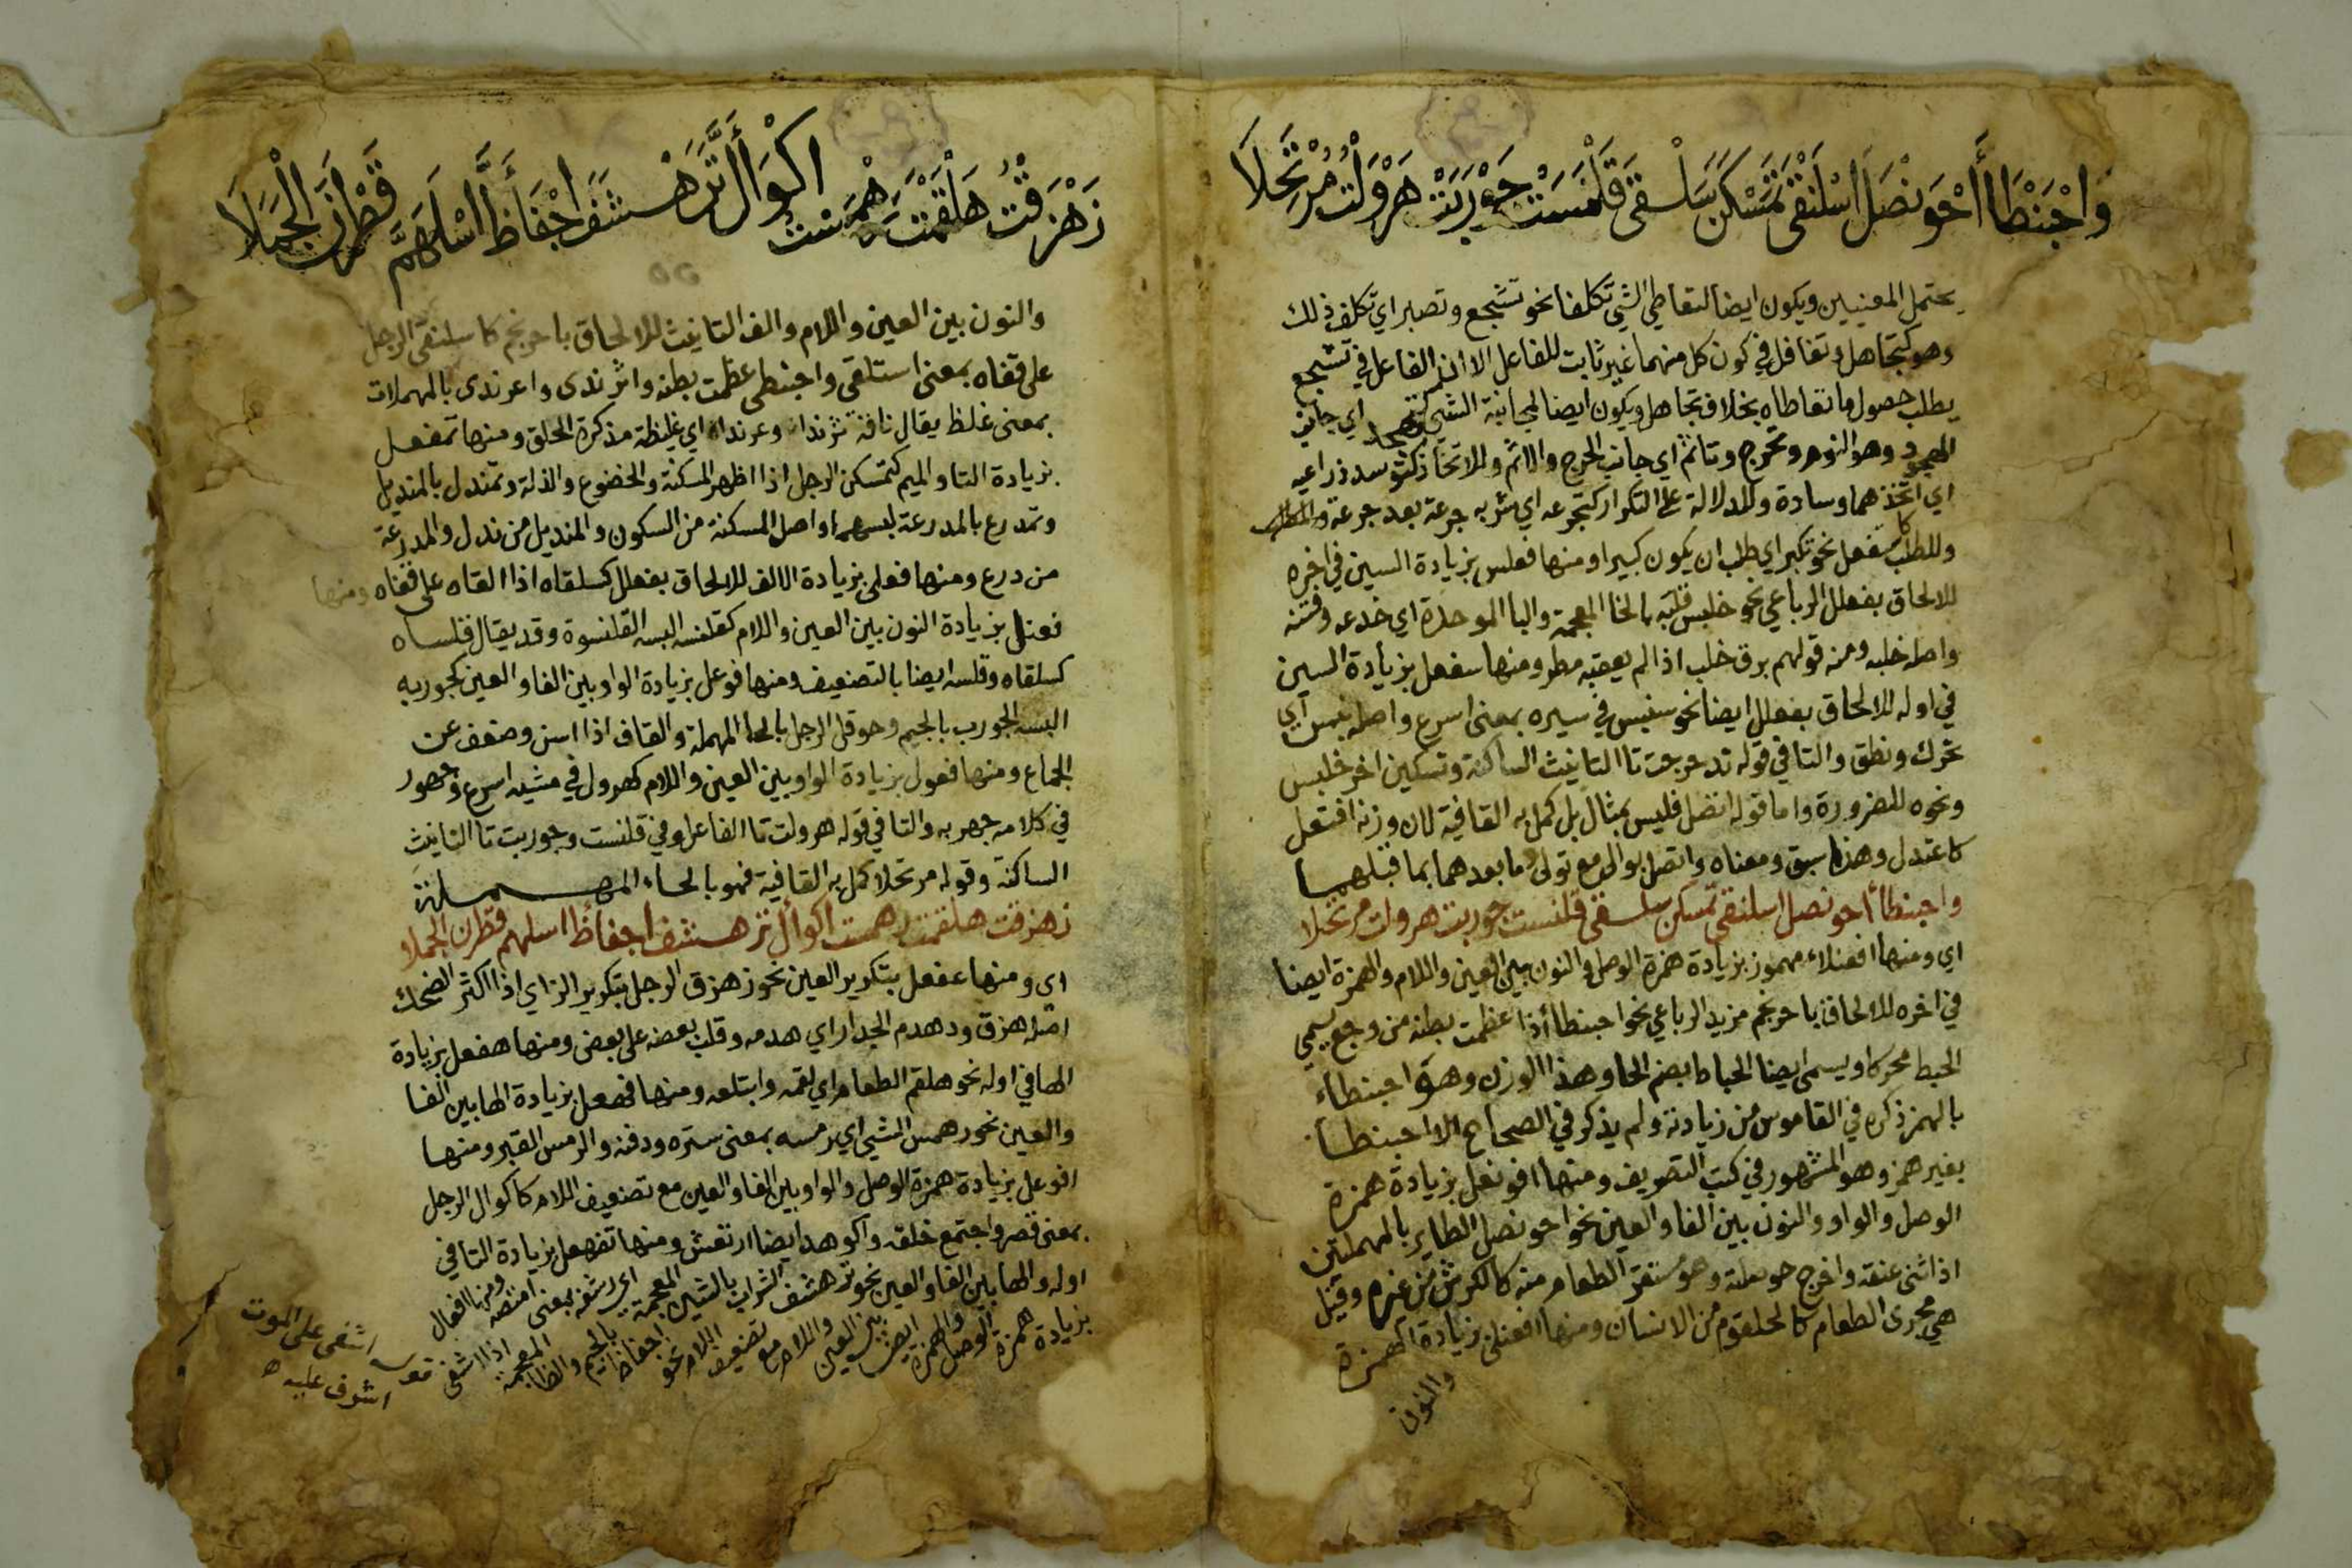 وَاحْبَنْطَأَ احْوَنْصَلَ اسْلَنْقَى تَمَسْكَنَ سَلْقَى قَلْنَسَتْ جَوْرَبَتْ هَرْوَلْتُ مُرْتَحِلَا
يحتمل المعنيين ويكون ايضا لتعاطي الشي تكلفا نحو تشجع وتصبر اي تكلف ذلك
وهو كتجاهل وتغافل في كون كل منهما غير ثابت للفاعل الا ان الفاعل في تشجع
يطلب حصول ما تعاطاه بخلاف تجاهل ويكون ايضا لمجانبة الشي كتهجد اي جانب
الهجود وهو النوم وتحرج وتاثم اي جانب الحرج والاثم وللاتخاذ كتوسد ذراعيه
اي اتخذهما وسادة وللدلالة على التكرار كتجرعه اي شربه جرعة بعد جرعة
وللطلب كاستفعل نحو تكبر اي طلب ان يكون كبيرا ومنها فعلس بزيادة السين في اخره
للالحاق بفعلل الرباعي نحو خلبس قلبه بالخا المعجمة والبا الموحدة اي خدعه وفتنه
واصله خلبه ومنه قولهم برق خلب اذا لم يعقبه مطر ومنها سفعل بزيادة السين
في اوله للالحاق بفعلل ايضا نحو سنبس في سيره بمعنى اسرع واصله نبس اي
تحرك ونطق والتا في قوله تدحرجت تا التانيث الساكنة وتسكين اخر خلبس
ونحوه للضرورة واما قوله اتصل فليس بمثال بل كمل به القافية لان وزنه افتعل
كاعتدل وهذا سبق ومعناه واتصل بوالى مع تولى وما بعدهما بما قبلهما
واحبنطأ احونصل اسلنقى تمسكن سلقى قلنست جوربت هرولت مرتحلا
اي ومنها افعنلاء مهموز بزيادة همزة الوصل والنون بين العين واللام والهمزة ايضا
في اخره للالحاق باحرنجم مزيد الرباعي نحو احبنطأ اذا عظمت بطنه من وجع يسمي
الحبط محركا ويسمى ايضا الحباط بضم الحا وهذا الوزن وهو احبنطاء
بالهمز ذكره في القاموس من زيادته ولم يذكر في الصحاح الا احبنطا
بغير همز وهو المشهور في كتب التصريف ومنها افونعل بزيادة همزة
الوصل والواو والنون بين الفا والعين نحو احونصل الطاير بالمهملتين
اذا ثنى عنقه واخرج حوصلته وهو مستقر الطعام منه كالكرش من غيره وقيل
هي مجرى الطعام كالحلقوم من الانسان ومنها افعنلى بزيادة الهمزة
والنون
زَهْزَقْتُ هَلْقَمْتُ رَهْمَسْتُ اكْوَأَلَّ تَرَهْشَفَ اجْفَأَظَّ اسْلَهَمَّ قَطْرَنَ الْجَمَلَا
والنون بين العين واللام والف التانيث للالحاق باحرنجم كاسلنقى الرجل
على قفاه بمعنى استلقى واحبنطى عظمت بطنه واثرندى واعرندى بالمهملات
بمعنى غلظ يقال ناقة ثرنداة وعرنداة اي غليظة مذكرة الخلق ومنها تمفعل
بزيادة التا والميم كتمسكن الرجل اذا اظهر المسكنة والخضوع والذلة وتمندل بالمنديل
وتمدرع بالمدرعة لبسهما واصل المسكنة من السكون والمنديل من ندل والمدرعة
من درع ومنها فعلى بزيادة الالف للالحاق بفعلل كسلقاه اذا القاه على قفاه ومنها
فعنل بزيادة النون بين العين واللام كقلنسه البسه القلنسوة وقد يقال قلساه
كسلقاه وقلسه ايضا بالتضعيف ومنها فوعل بزيادة الواو بين الفا والعين كجوربه
البسه الجورب بالجيم وحوقل الرجل بالحا المهملة والقاف اذا اسن وضعف عن
الجماع ومنها فعول بزيادة الواو بين العين واللام كهرول في مشيه اسرع وجهور
في كلامه جهر به والتا في قوله هرولت تا الفاعل وفي قلنست وجوربت تا التانيث
الساكنة وقوله مرتحلا كمل به القافية فهو بالحاء المهملة
زهزقت هلقمت رهمست اكوأل ترهشف اجفأظ اسلهم قطرن الجملا
اي ومنها عفعل بتكرير العين نحو زهزق الرجل بتكرير الزاي اذا اكثر الضحك
اصله هزق ودهدم الجدار اي هدمه وقلب بعضه على بعض ومنها هفعل بزيادة
الها في اوله نحو هلقم الطعام اي لقمه وابتلعه ومنها فهعل بزيادة الها بين الفا
والعين نحو رهمس الشي اي رمسه بمعنى ستره ودفنه والرمس القبر ومنها
افوعل بزيادة همزة الوصل والواو بين الفا والعين مع تضعيف اللام كاكوال الرجل
بمعنى قصر واجتمع خلقه واكوهد ايضا ارتعش ومنها تفهعل بزيادة التا في
اوله والها بين الفا والعين نحو ترهشف الشراب بالشين المعجمة اي رشفه بمعنى امتصه ومنها افعال
بزيادة همزة الوصل والهمزة ايضا بين العين واللام مع تضعيف اللام نحو اجفاظ بالجيم والظا المعجمة اذا اشفى
اشفى على الموت
اشرف عليه